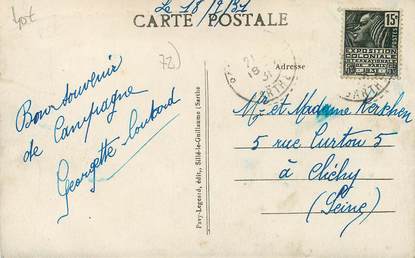 40€
Le 18/8/31
CARTE POSTALE
72)
Bon souvenir
de Campagne
Georgette
Pavy-Legeard, édit., Sillé-le-Guillaume (Sarthe)
Adresse
15c
POSTES
EXPOSITION
COLONIALE
INTERNATIONALE
PARIS 1931
21
18
SARTHE
Mr et Madame Kerkhen
5 rue Curton 5
à Clichy
(Seine)